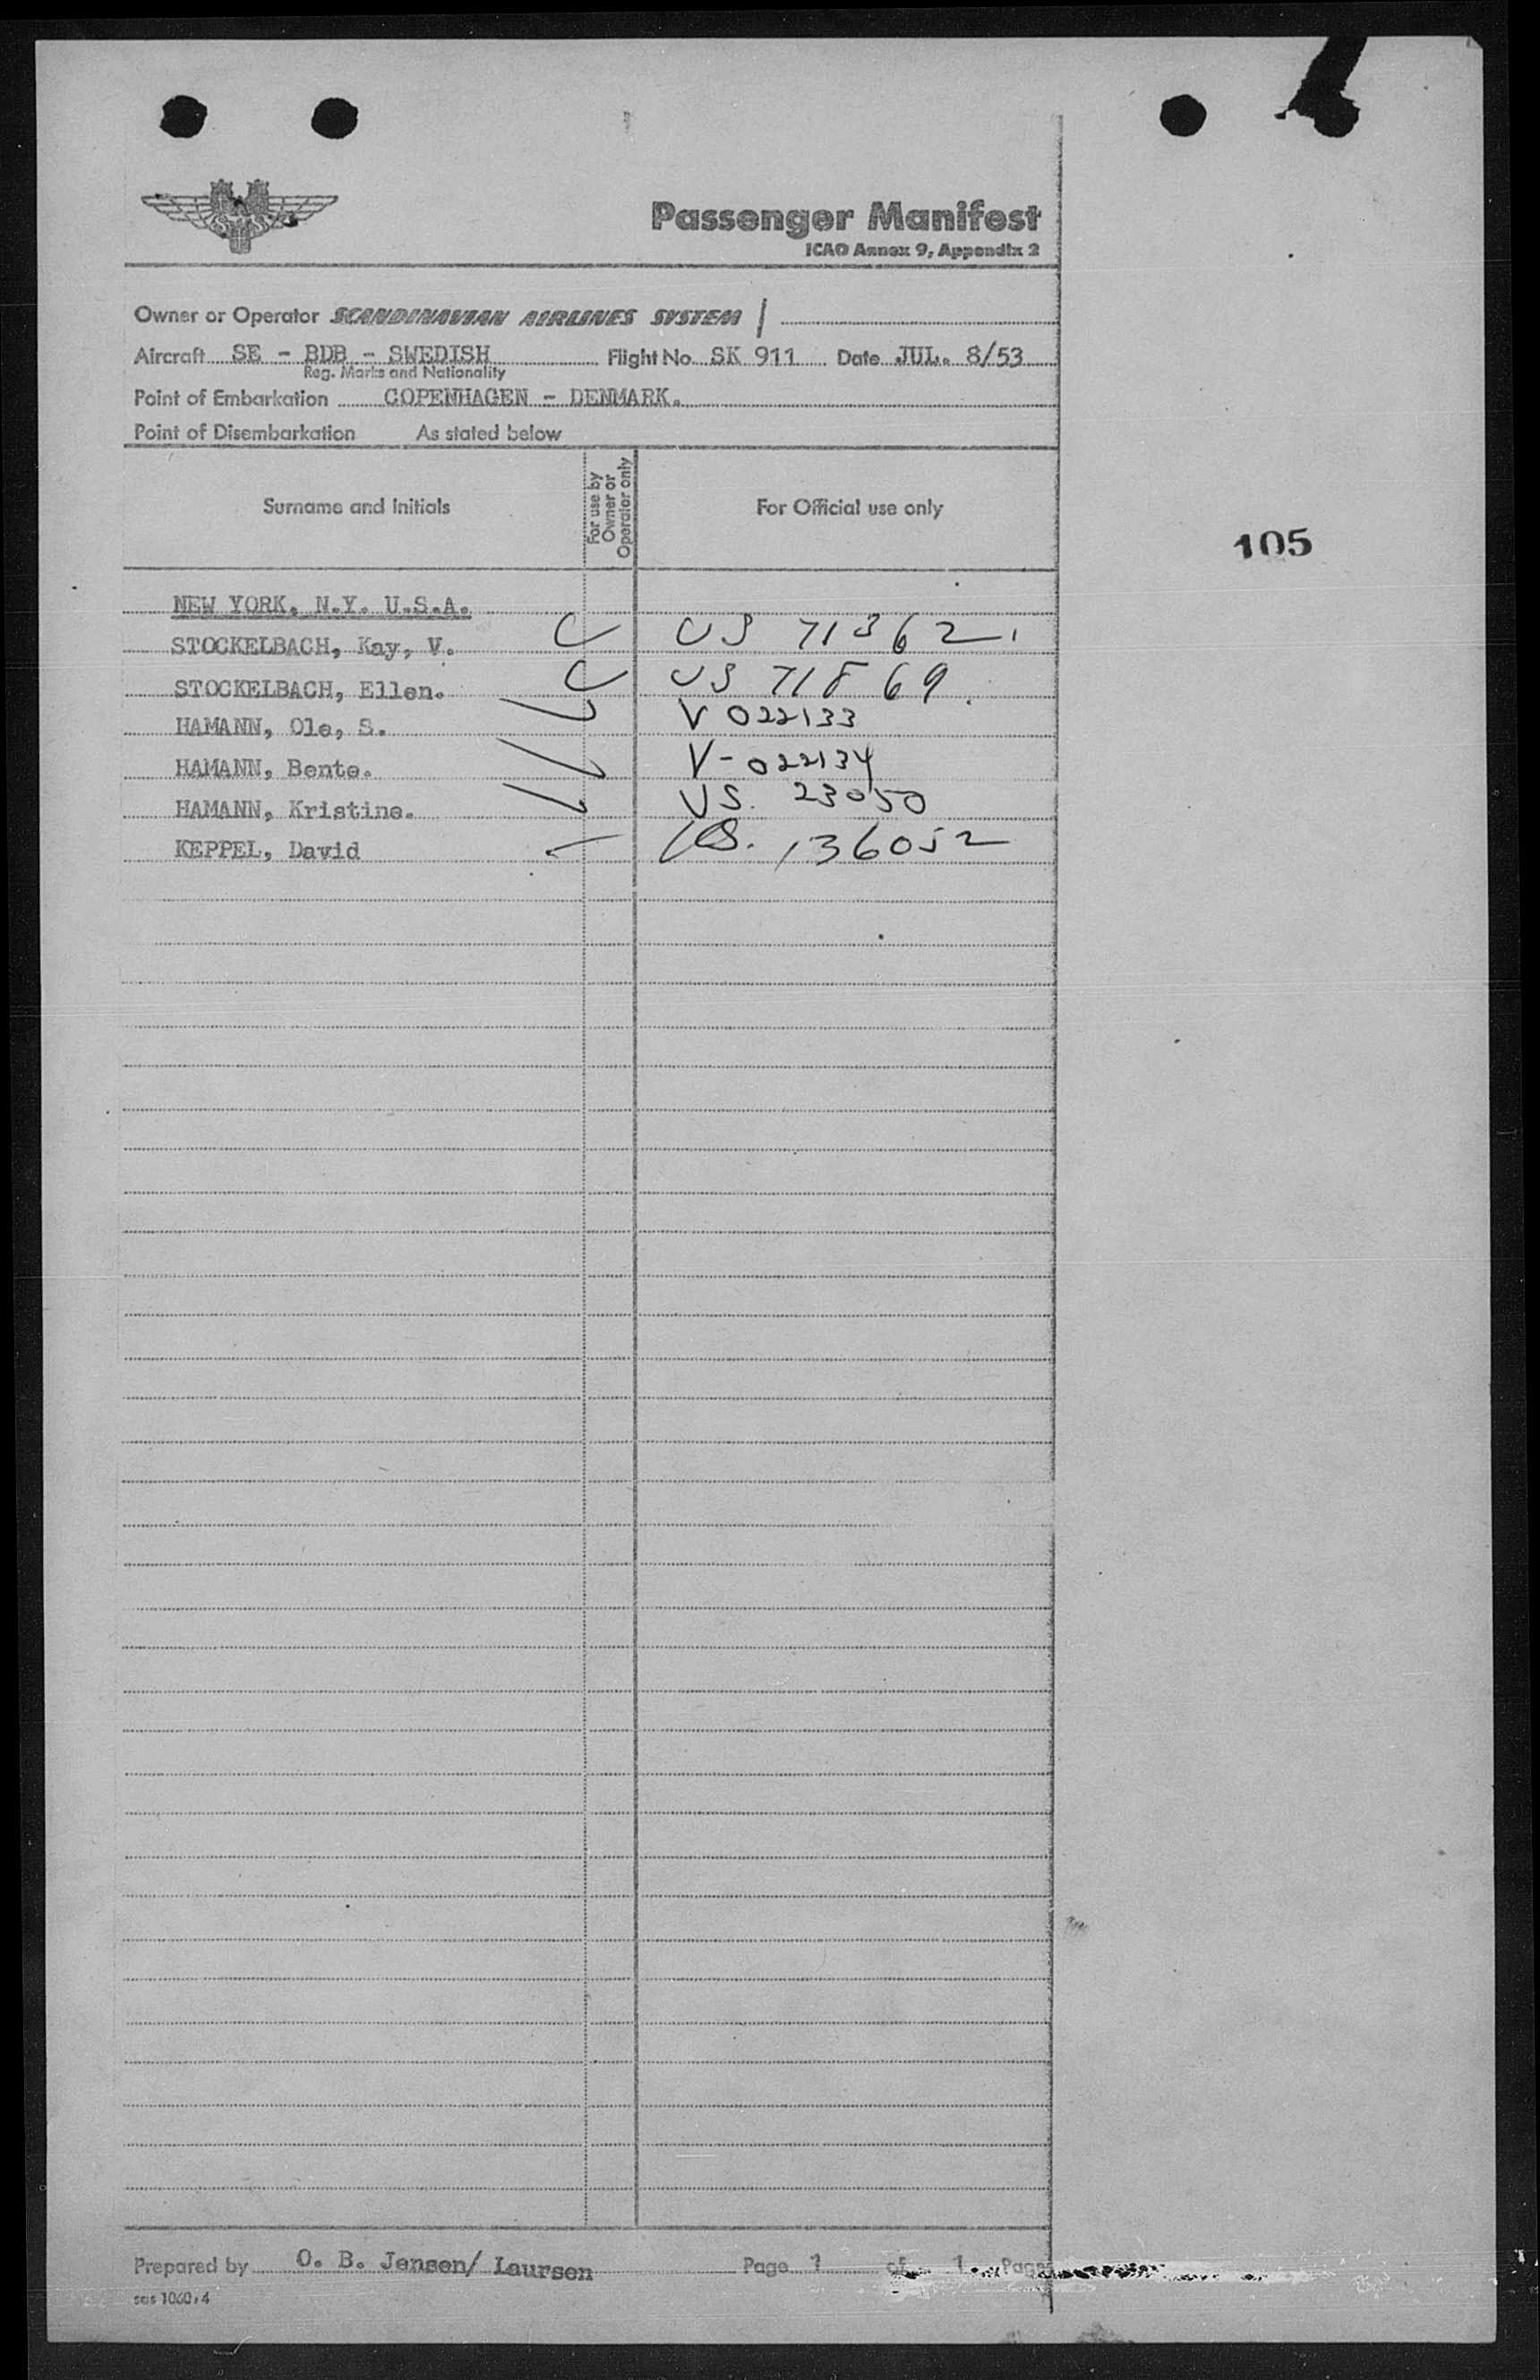 SAS
Passenger Manifest
ICAO Annex 9, Appendix 2
Owner or Operator SCANDINAVIAN AIRLINES SYSTEM /
Aircraft SE - BDB - SWEDISH Flight No. SK 911 Date JUL. 8/53
Reg. Marks and Nationality
Point of Embarkation COPENHAGEN - DENMARK.
Point of Disembarkation As stated below
Surname and Initials For use by Owner or Operator only For Official use only
105
NEW YORK, N.Y. U.S.A.
STOCKELBACH, Kay, V. US 71362
STOCKELBACH, Ellen. US 71869
HAMANN, Ole, S. V 022133
HAMANN, Bente. V-022134
HAMANN, Kristine. US. 23050
KEPPEL, David US. 136052
Prepared by O. B. Jensen/ Laursen Page 1 of 1 Pages
sas 1060:4